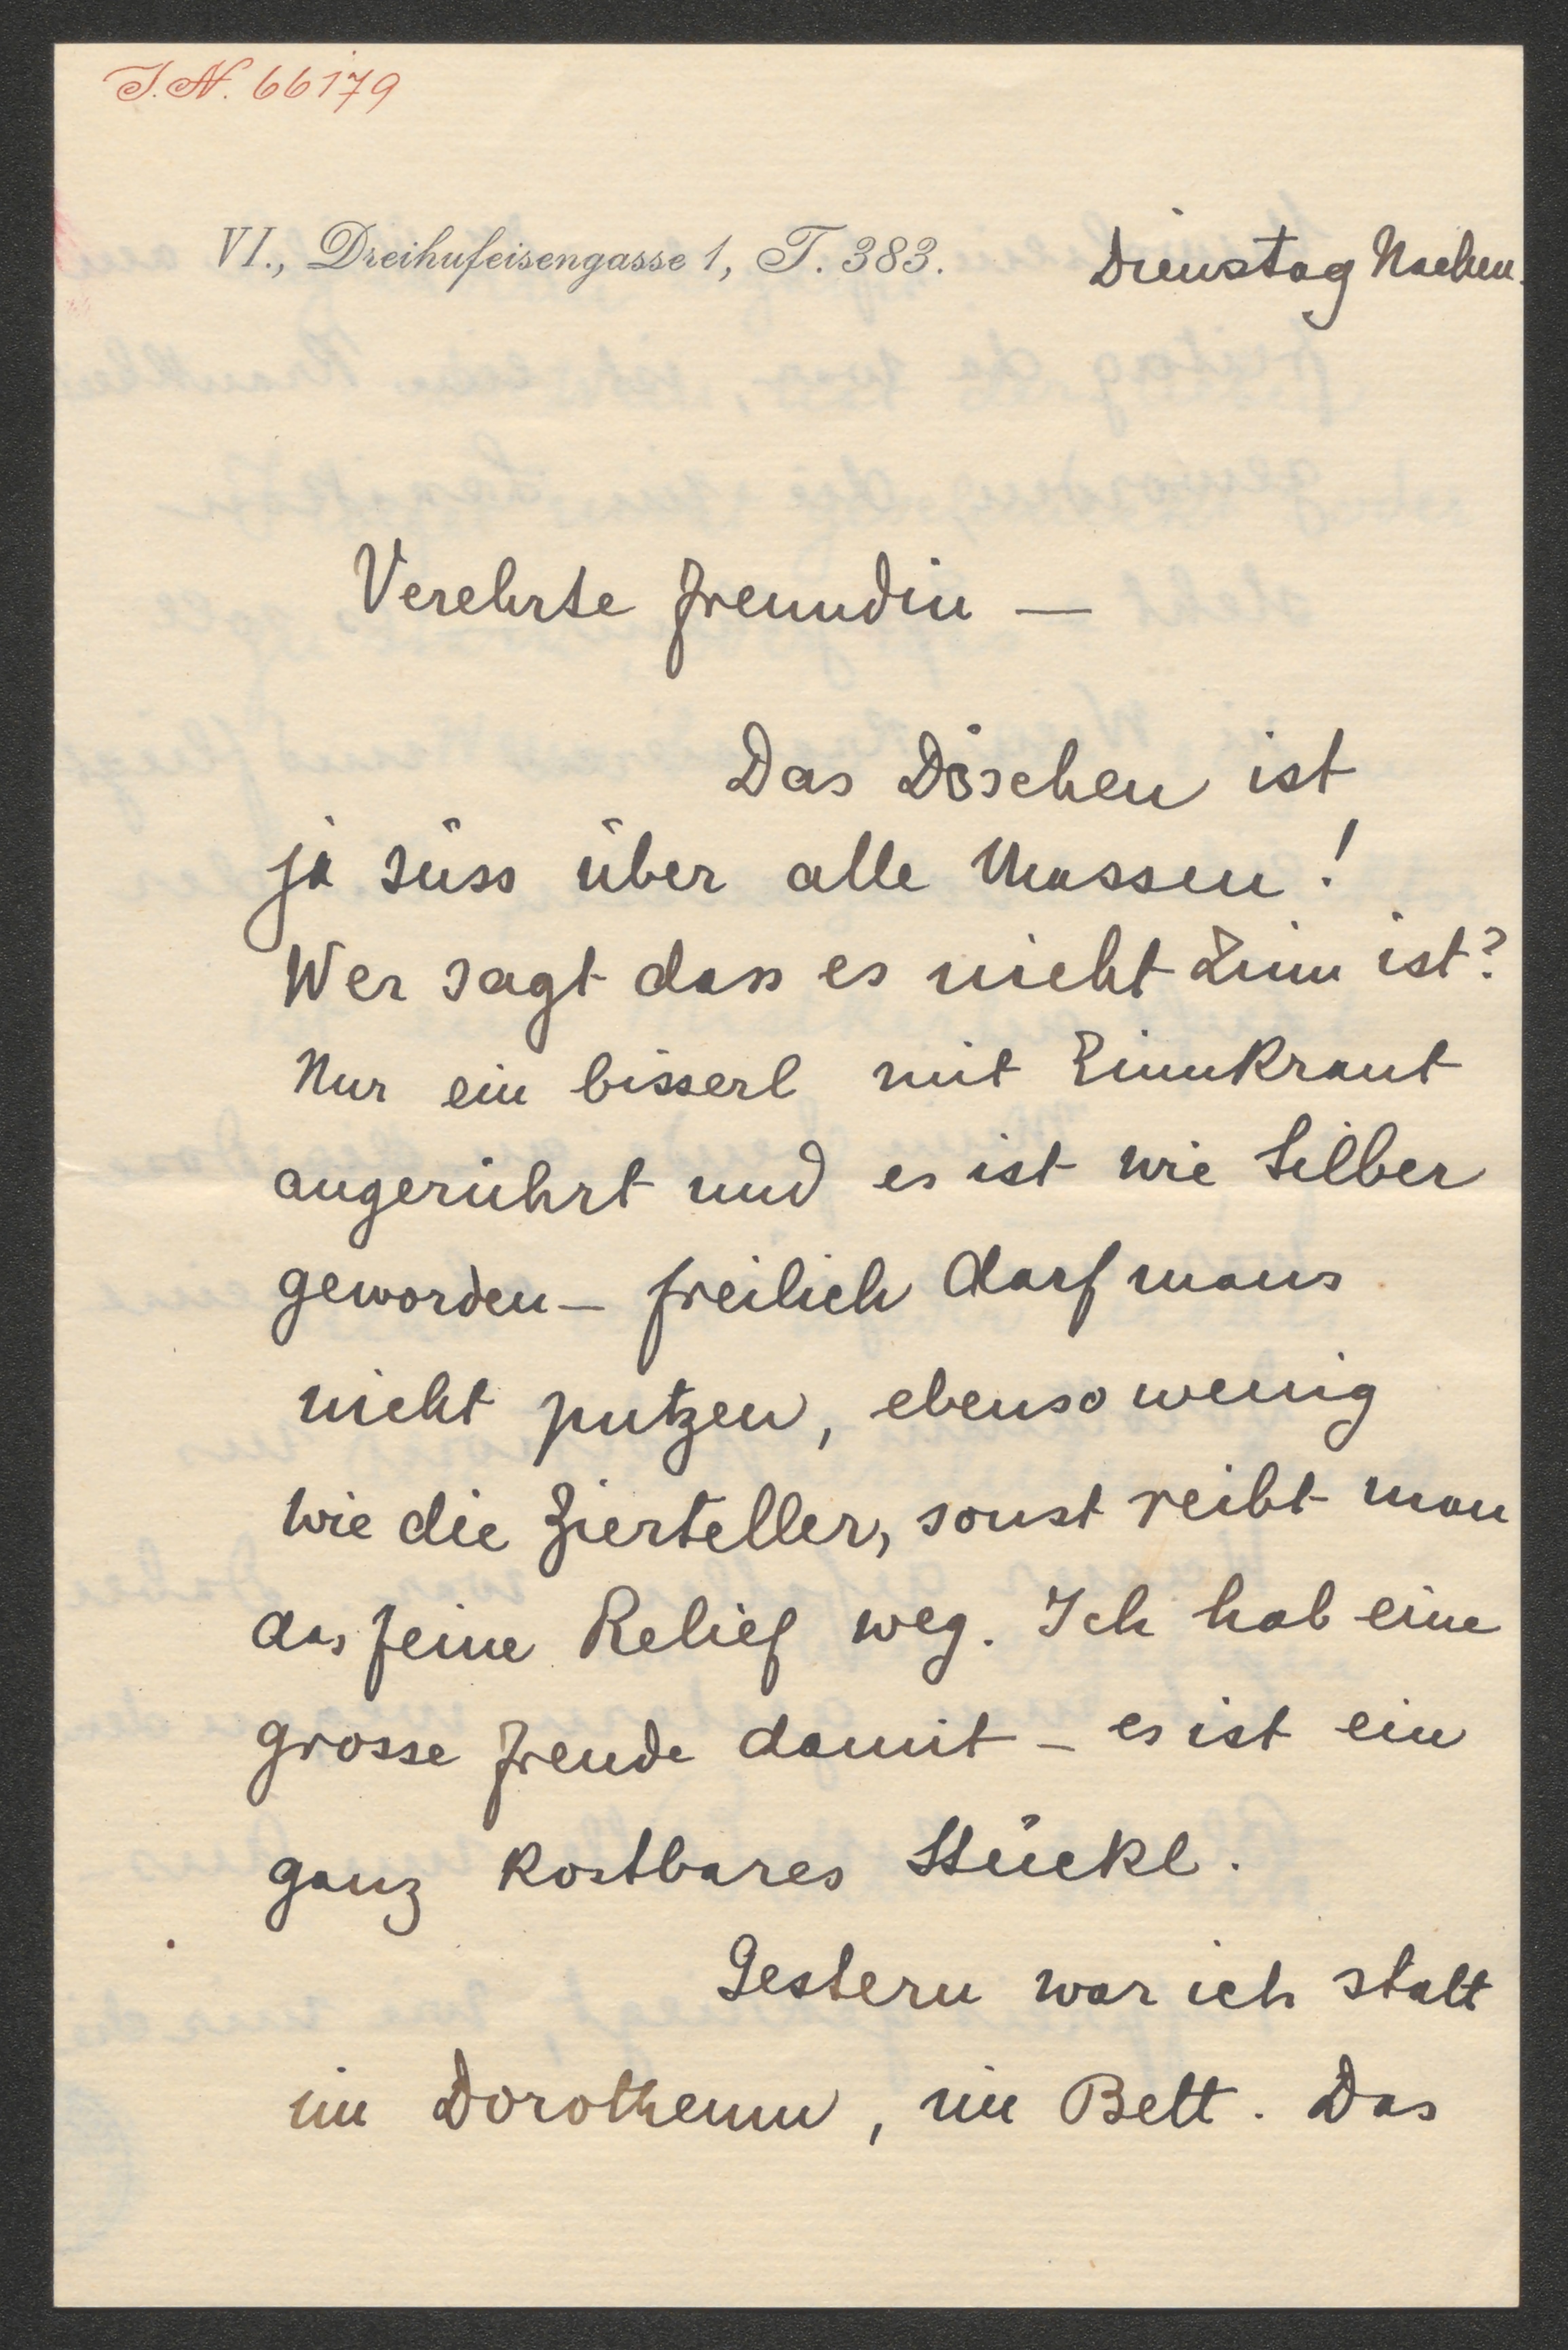 I.N. 66179
VI., Dreihufeisengasse 1, T. 383.
Dienstag Nachm.
Verehrte Freundin —
Das Döschen ist
ja süss über alle Massen!
Wer sagt dass es nicht Zinn ist?
Nur ein bisserl mit Zinnkraut
angerührt und es ist wie Silber
geworden — freilich darf mans
nicht putzen, ebenso wenig
wie die Zierteller, sonst reibt man
das feine Relief weg. Ich hab eine
grosse Freude damit — es ist ein
ganz kostbares Stückl.
Gestern war ich statt
im Dorotheum, im Bett. Das